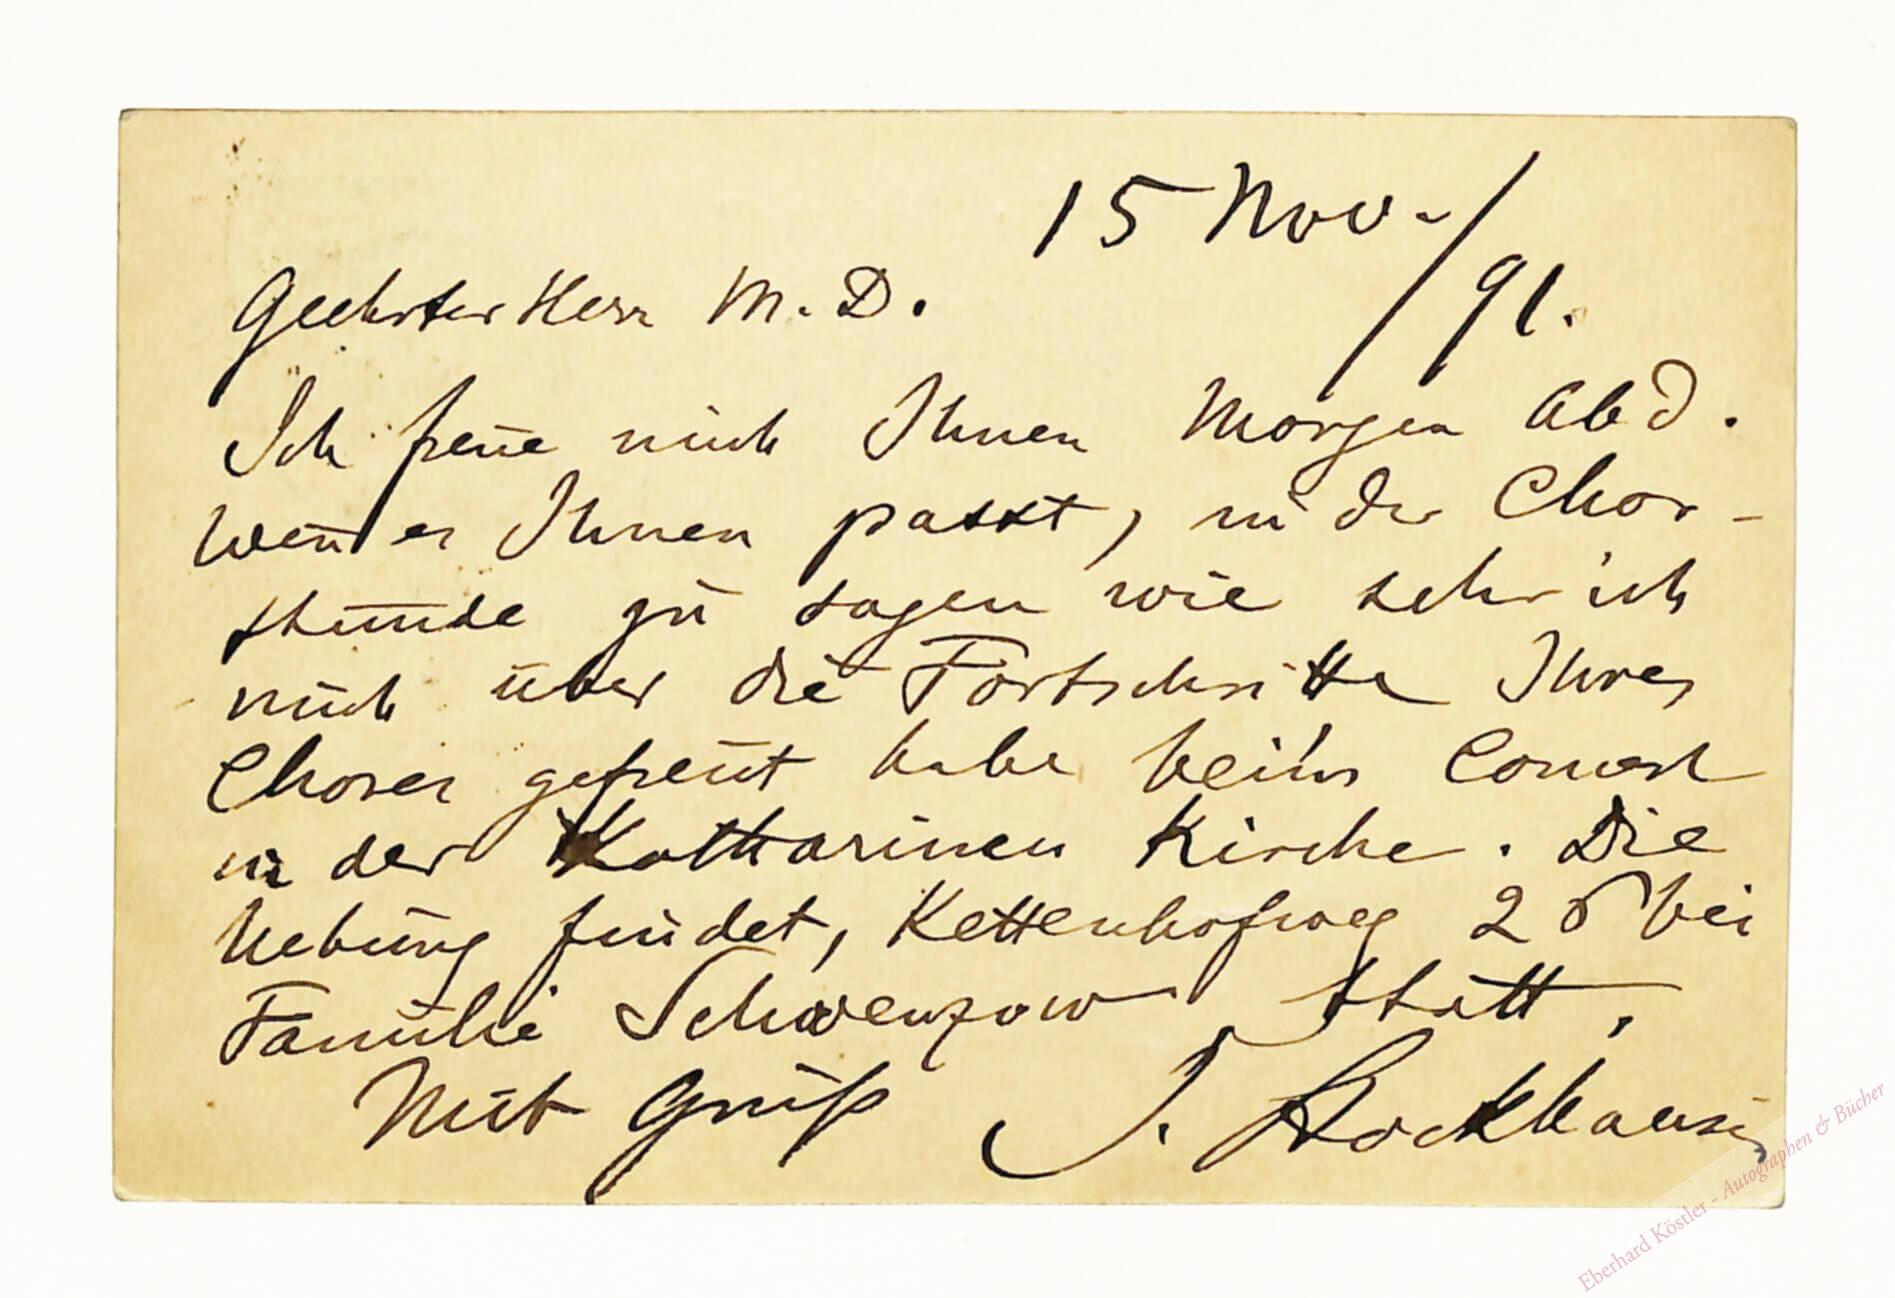 15 Nov./91.
Geehrter Herr M. D.
Ich freue mich Ihnen Morgen Abd.
wen̄ es Ihnen passt, in der Chor-
stunde zu sagen wie sehr ich
mich über die Fortschritte Ihres
Chores gefreut habe bei'm Concert
in der Katharinen Kirche. Die
Uebung findet, Kettenhofweg 26 bei
Familie Schwenzow statt,
Mit Gruß J. Stockhausen
Eberhard Köstler - Autographen & Bücher